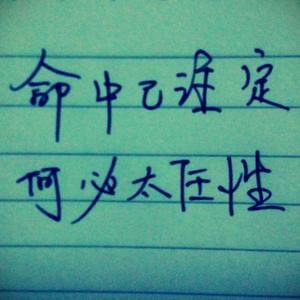 命中已注定
何必太任性